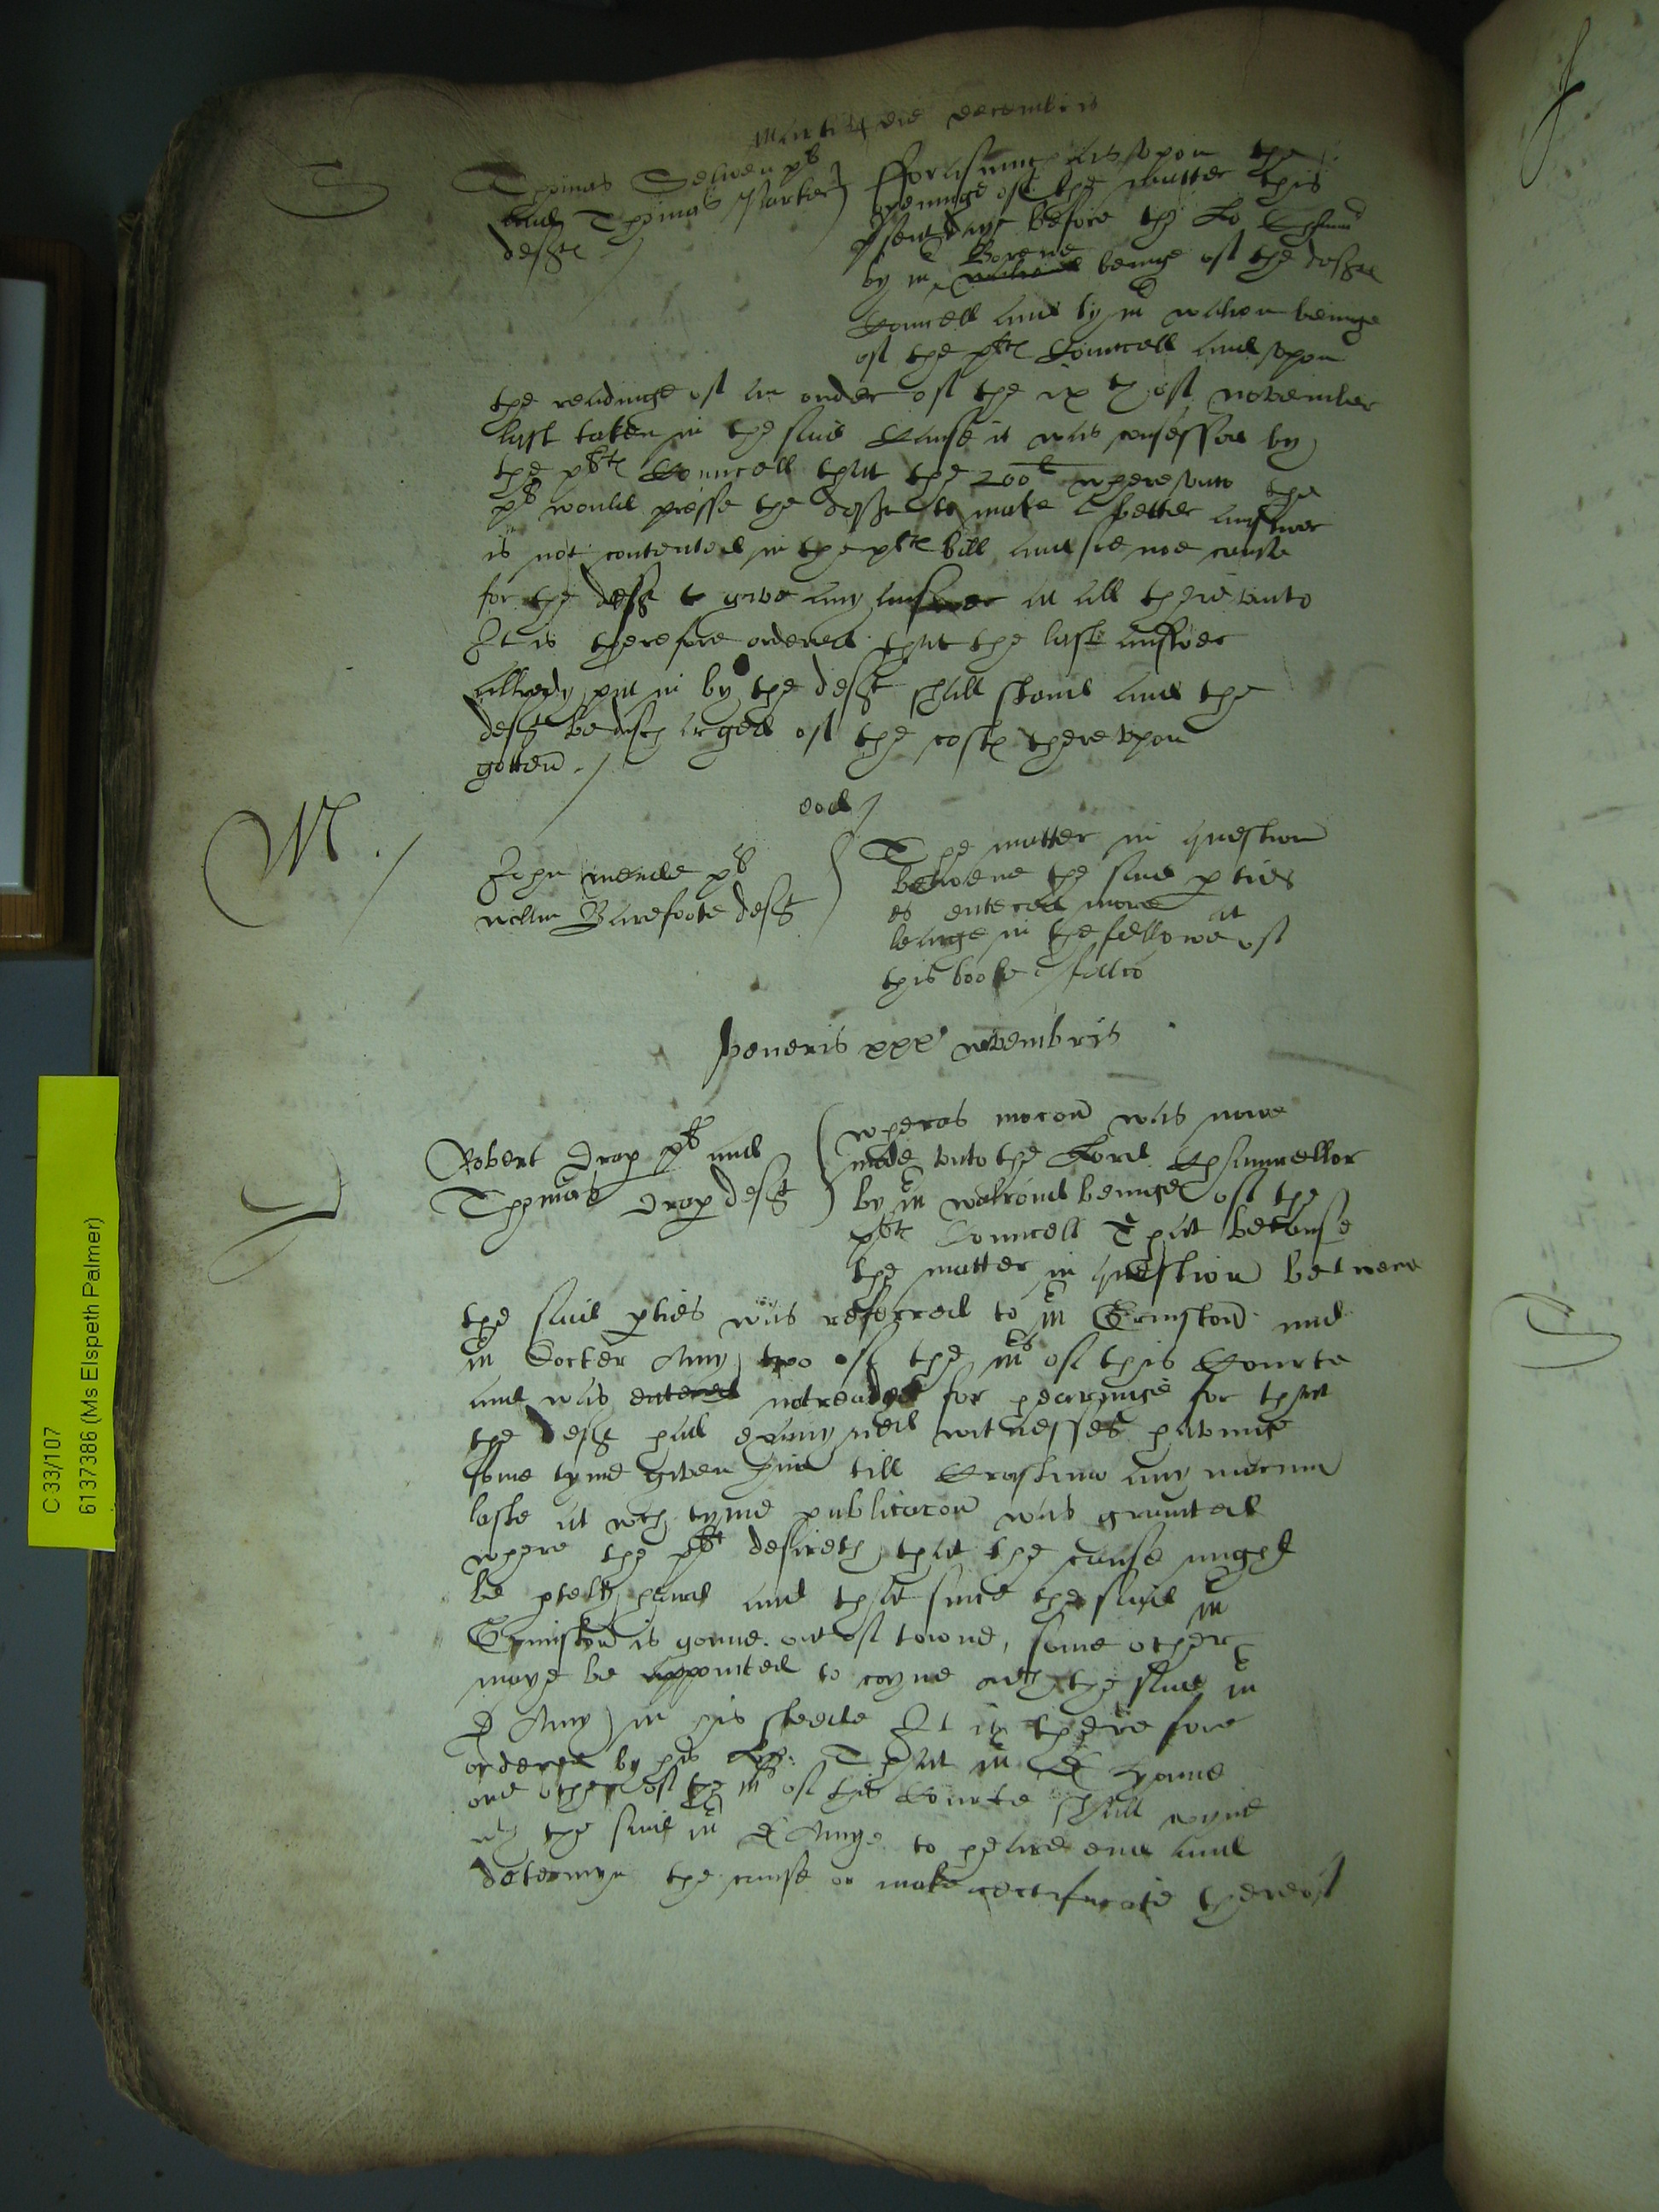 Martis 4 die decembris
S
Thomas Selwen pt
and Thomas Parker
deftes
Fforasmuch as upon the
openinge of the matter this
psent daye before the Lo Chaunc
by mr Borene beinge of the deftes
Councell and by mr walron beinge
of the ptes Councell and upon
the readinge of an order of the ix th of november
last taken in the said Cause it was confessed by
the ptes Councell that the 200 li whereunto the
pt would presse the deft to make a better answer
is not conteined in the ptes bill and soe noe cause
for the deft to give any answer at all thereunto
It is therefore ordered that the last answer
allredy put in by the deft shall stand and the
deft be discharged of the costes thereupon
gotten
eod
M
John meade pt
willm Barefoote deft
The matter in question
betwene the said pties
is entered more at
large in the fellowe of
this booke
Veneris xxx novembris
J
Robert Jrap pt and
Thomas Jrap deft
wheras mocon was nowe
made unto the Lord Chauncellor
by mr walrond beinge of the
ptes Councell That because
the matter in question betwene
the said pties was referred to mr Grimston and
mr Docter Amy two of the mrs of this Courte
and was entered not readye for hearinge for that
the deft had examyned witnesses havinge
some tyme given him till Crastino
laste at wch tyme publicacon was graunted
where the pt desireth that the cause might
be pntly heard and that since the said mr
Grimston is gonne out of towne, some other
maye be appointed to joyne with the said mr
D Amy in his steede It is therefore
ordered by his Lp: That mr D
one other of the mrs of this Courte shall joyne
wth the said mr D Amye to heare end and
determyn the cause or make certificate thereof
C 33/107
6137386 (Ms Elspeth Palmer)